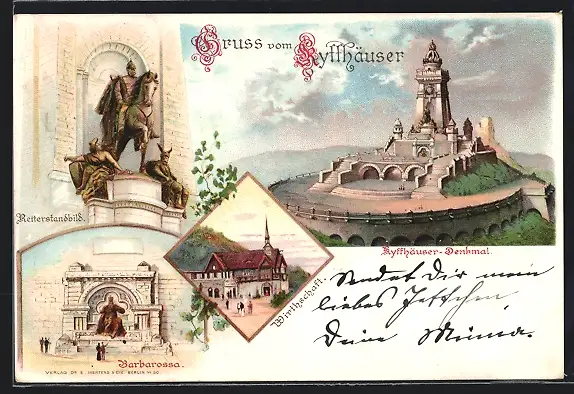 Gruss vom Kyffhäuser
Reiterstandbild.
Kyffhäuser-Denkmal.
Wirthschaft.
Barbarossa.
Sendet Dir mein
liebes Jettchen
Deine Minna.
VERLAG DR E. MERTENS & CIE BERLIN